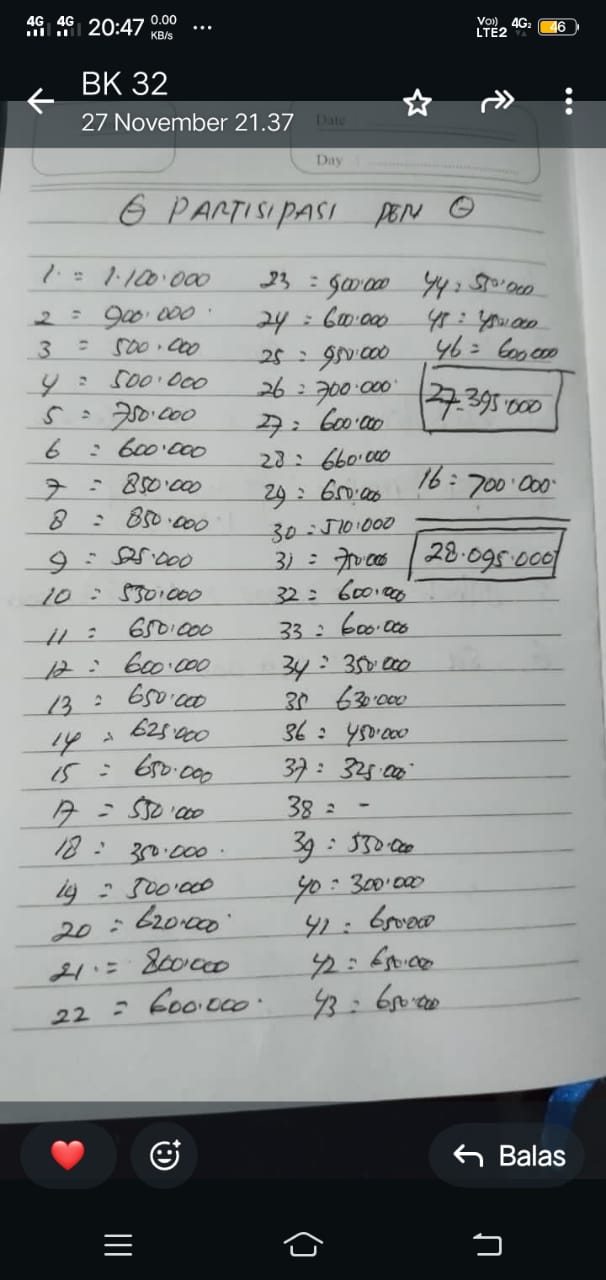 4G 4G 20:47 0.00 KB/s ...
Vo)) LTE2 4G2 46
BK 32
27 November 21.37
Date
Day
PARTISIPASI PEN
1. = 1.100.000
2 = 900.000
3 = 500.000
4 = 500.000
5 = 750.000
6 = 600.000
7 = 850.000
8 = 850.000
9 = 525.000
10 = 550.000
11 = 650.000
12 = 600.000
13 = 650.000
14 = 625.000
15 = 650.000
17 = 550.000
18 = 350.000
19 = 500.000
20 = 620.000
21 = 800.000
22 = 600.000
23 = 900.000
24 = 600.000
25 = 950.000
26 = 700.000
27 = 600.000
28 = 660.000
29 = 650.000
30 = 510.000
31 = 750.000
32 = 600.000
33 = 600.000
34 = 350.000
35 630.000
36 = 450.000
37 = 325.000
38 = -
39 = 550.000
40 = 300.000
41 = 650.000
42 = 650.000
43 = 650.000
44 = 550.000
45 = 450.000
46 = 600.000
27.395.000
16 = 700.000
28.095.000
Balas